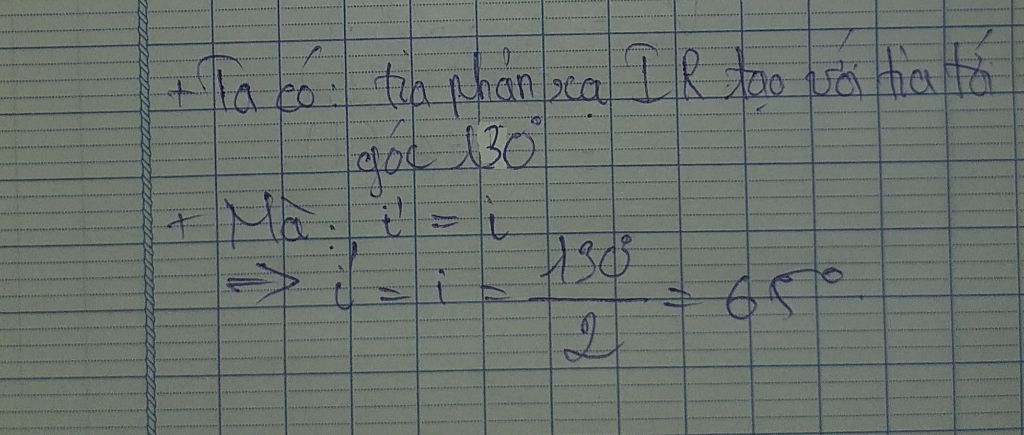 + Ta có: tia phản xạ IR tạo với tia tới
góc 130°
+ Mà: i' = i
=> i' = i = 130° / 2 = 65°